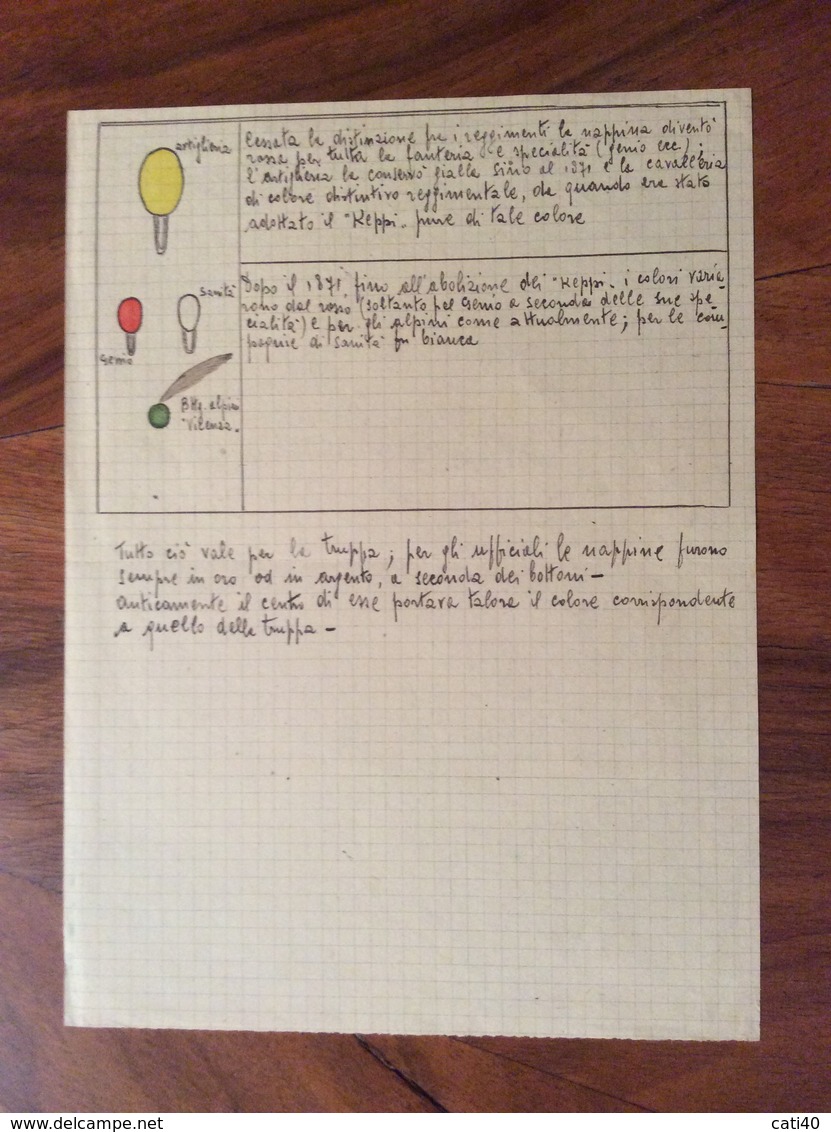 artiglieria
Cessata la distinzione fra i reggimenti la nappina diventò
rossa per tutta la fanteria e specialità (genio ecc);
l'artiglieria la conservò gialla sino al 1871 e la cavalleria
di colore distintivo reggimentale, da quando era stato
adottato il "Keppi" pure di tale colore
sanità
genio
Btg. alpini
"Vicenza"
Dopo il 1871, fino all'abolizione dei "Keppi" i colori varia-
rono dal rosso (soltanto pel Genio a seconda delle sue spe-
cialità) e per gli alpini come attualmente; per le com-
pagnie di sanità fu bianca
Tutto ciò vale per la truppa; per gli ufficiali le nappine furono
sempre in oro od in argento, a seconda dei bottoni –
anticamente il centro di esse portava talora il colore corrispondente
a quello della truppa –
cati40